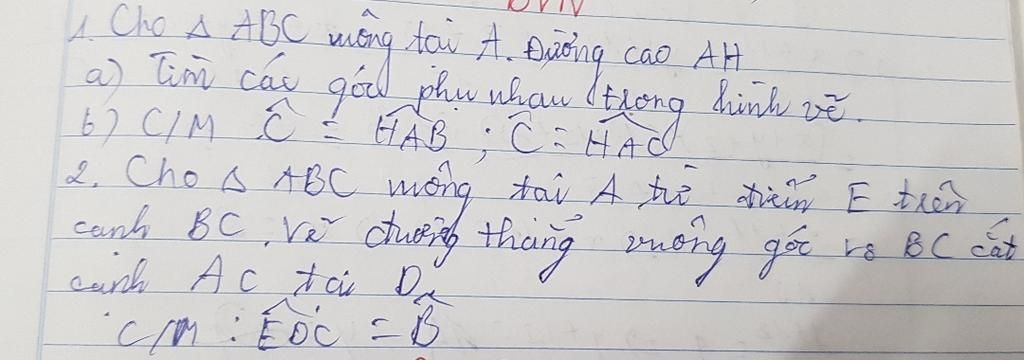 BVN
1. Cho Δ ABC vuông tại A. Đường cao AH
a) Tìm các góc phụ nhau trong hình vẽ.
b) C/M Ĉ = HAB ; Ĉ = HAC
2. Cho Δ ABC vuông tại A từ điểm E trên
cạnh BC. Vẽ đường thẳng vuông góc vs BC cắt
cạnh AC tại D
C/M : EDC = B̂